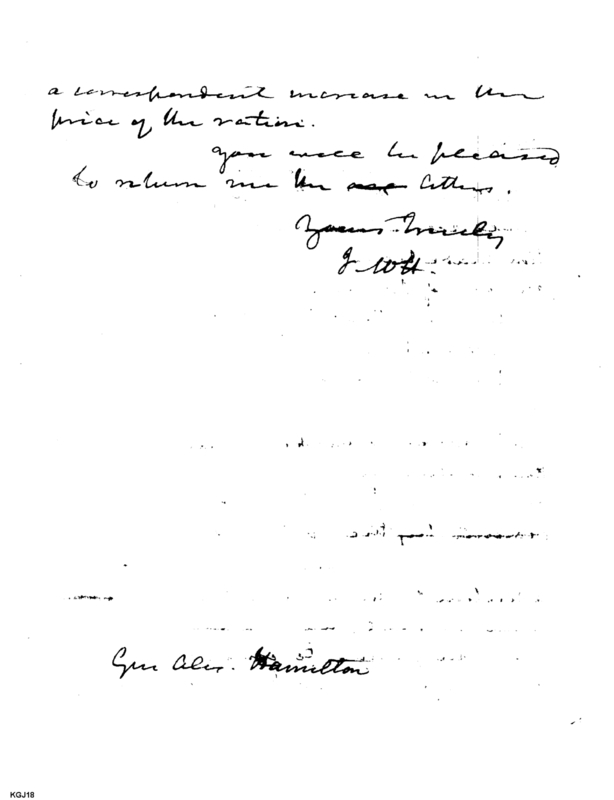 a correspondent increase in the
price of the ration.
You will be pleased
to return me the letters.
Yours truly
J. W.
Genl Alex. Hamilton
KGJ18